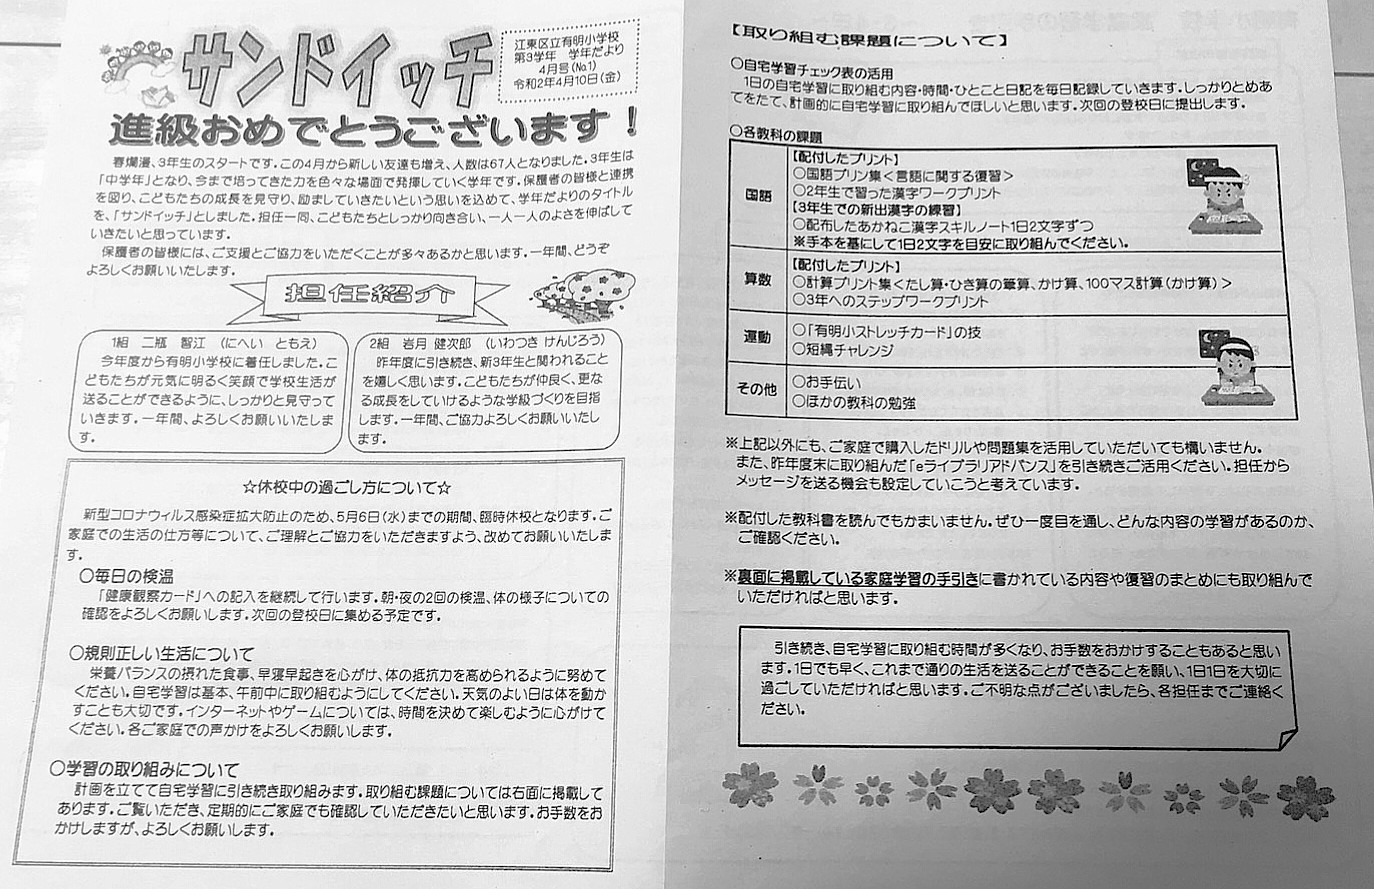 サンドイッチ
江東区立有明小学校
第3学年 学年だより
4月号(No.1)
令和2年4月10日(金)
進級おめでとうございます!
春爛漫、3年生のスタートです。この4月から新しい友達も増え、人数は67人となりました。3年生は
「中学年」となり、今まで培ってきた力を色々な場面で発揮していく学年です。保護者の皆様と連携
を図り、こどもたちの成長を見守り、励ましていきたいという思いを込めて、学年だよりのタイトル
を、「サンドイッチ」としました。担任一同、こどもたちとしっかり向き合い、一人一人のよさを伸ばして
いきたいと思っています。
保護者の皆様には、ご支援とご協力をいただくことが多々あるかと思います。一年間、どうぞ
よろしくお願いいたします。
担任紹介
1組 二瓶 智江 (にへい ともえ)
今年度から有明小学校に着任しました。こ
どもたちが元気に明るく笑顔で学校生活が
送ることができるように、しっかりと見守って
いきます。一年間、よろしくお願いいたしま
す。
2組 岩月 健次郎 (いわつき けんじろう)
昨年度に引き続き、新3年生と関われること
を嬉しく思います。こどもたちが仲良く、更な
る成長をしていけるような学級づくりを目指
します。一年間、ご協力よろしくお願いいたし
ます。
☆休校中の過ごし方について☆
新型コロナウィルス感染症拡大防止のため、5月6日(水)までの期間、臨時休校となります。ご
家庭での生活の仕方等について、ご理解とご協力をいただきますよう、改めてお願いいたしま
す。
○毎日の検温
「健康観察カード」への記入を継続して行います。朝・夜の2回の検温、体の様子についての
確認をよろしくお願いします。次回の登校日に集める予定です。
○規則正しい生活について
栄養バランスの摂れた食事、早寝早起きを心がけ、体の抵抗力を高められるように努めて
ください。自宅学習は基本、午前中に取り組むようにしてください。天気のよい日は体を動か
すことも大切です。インターネットやゲームについては、時間を決めて楽しむように心がけて
ください。各ご家庭での声かけをよろしくお願いします。
○学習の取り組みについて
計画を立てて自宅学習に引き続き取り組みます。取り組む課題については右面に掲載して
あります。ご覧いただき、定期的にご家庭でも確認していただきたいと思います。お手数をお
かけしますが、よろしくお願いします。
【取り組む課題について】
○自宅学習チェック表の活用
1日の自宅学習に取り組む内容・時間・ひとこと日記を毎日記録していきます。しっかりとめあ
てをたて、計画的に自宅学習に取り組んでほしいと思います。次回の登校日に提出します。
○各教科の課題
国語
【配付したプリント】
○国語プリン集<言語に関する復習>
○2年生で習った漢字ワークプリント
【3年生での新出漢字の練習】
○配布したあかねこ漢字スキルノート1日2文字ずつ
※手本を基にして1日2文字を目安に取り組んでください。
算数
【配付したプリント】
○計算プリント集<たし算・ひき算の筆算、かけ算、100マス計算(かけ算)>
○3年へのステップワークプリント
運動
○「有明小ストレッチカード」の技
○短縄チャレンジ
その他
○お手伝い
○ほかの教科の勉強
※上記以外にも、ご家庭で購入したドリルや問題集を活用していただいても構いません。
また、昨年度末に取り組んだ「eライブラリアドバンス」を引き続きご活用ください。担任から
メッセージを送る機会も設定していこうと考えています。
※配付した教科書を読んでもかまいません。ぜひ一度目を通し、どんな内容の学習があるのか、
ご確認ください。
※裏面に掲載している家庭学習の手引きに書かれている内容や復習のまとめにも取り組んで
いただければと思います。
引き続き、自宅学習に取り組む時間が多くなり、お手数をおかけすることもあると思い
ます。1日でも早く、これまで通りの生活を送ることができることを願い、1日1日を大切に
過ごしていただければと思います。ご不明な点がございましたら、各担任までご連絡く
ださい。